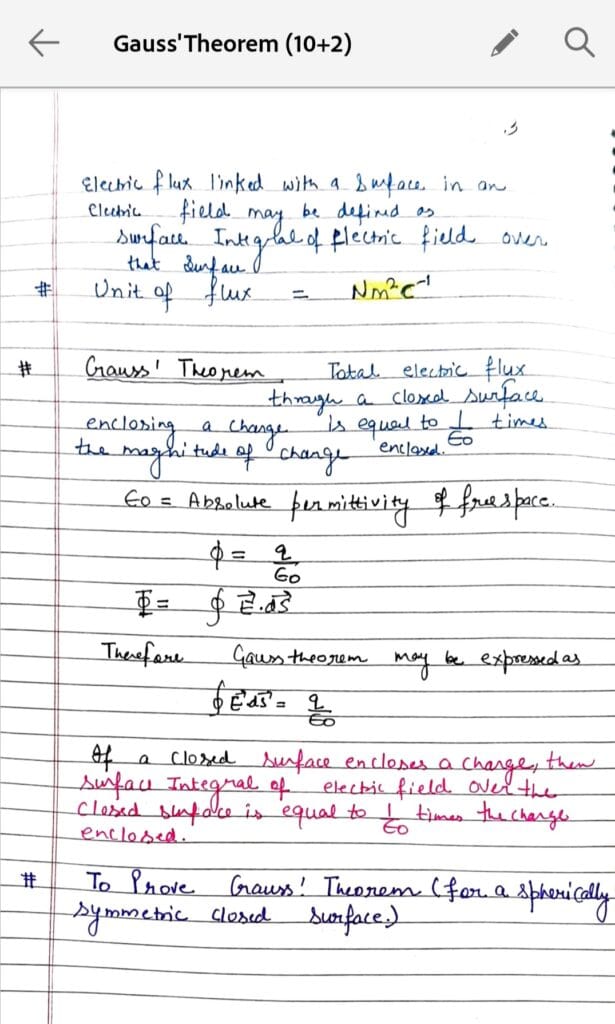 Gauss'Theorem (10+2)
.3
Electric flux linked with a Surface in an
Electric field may be defined as
surface Integral of Electric field over
that Surface
# Unit of flux = Nm²C⁻¹
# Gauss' Theorem Total electric flux
through a closed surface
enclosing a charge is equal to 1/ϵ0 times
the magnitude of charge enclosed.
ϵ0 = Absolute permittivity of free space.
ϕ = q/ϵ0
Φ = ∮ E⃗.dS⃗
Therefore Gauss theorem may be expressed as
∮ E⃗ dS⃗ = q/ϵ0
If a closed surface encloses a charge, then
surface Integral of electric field over the
closed surface is equal to 1/ϵ0 times the charge
enclosed.
# To Prove Gauss' Theorem (for a spherically
symmetric closed surface.)